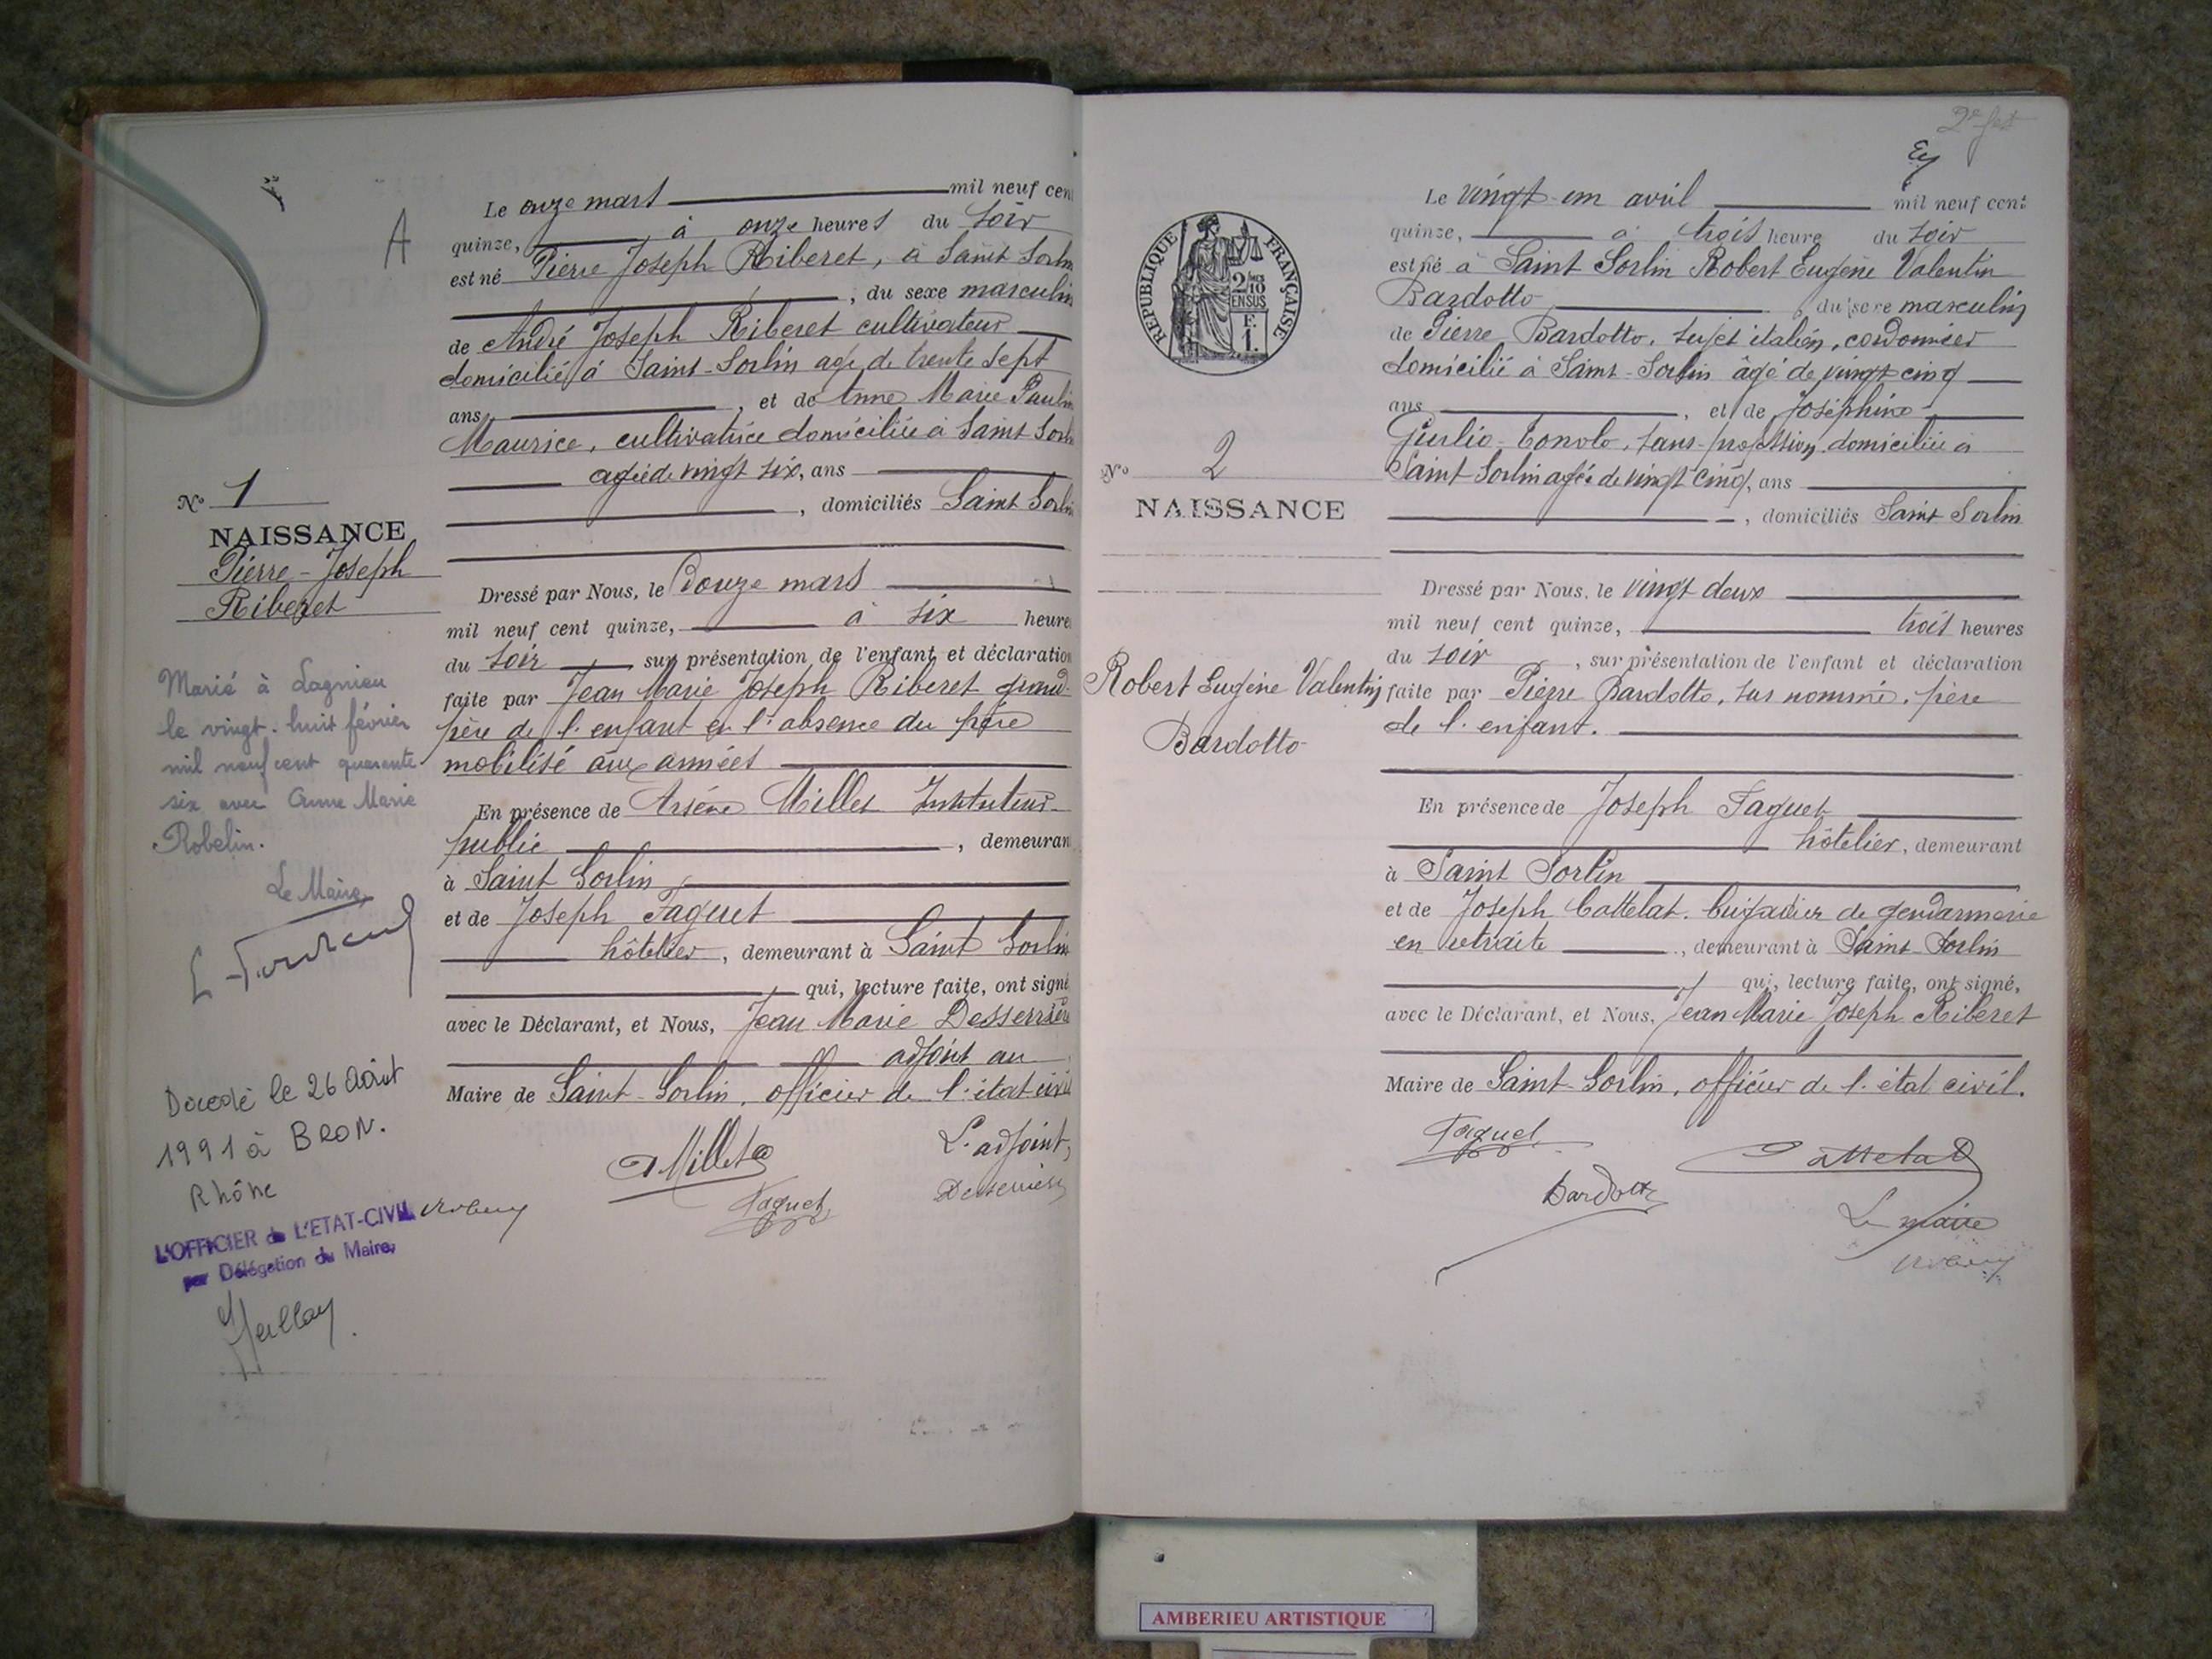 A
Le onze mars mil neuf cen
quinze, à onze heures du soir
est né Pierre Joseph Riberet, à Saint Sorlin
, du sexe masculin
de André Joseph Riberet cultivateur
domicilié à Saint-Sorlin age de trente sept
ans , et de Anne Marie Paulin
Maurice, cultivatrice domiciliée à Saint Sorlin
agée de vingt six, ans
, domiciliés Saint Sorlin
No 1
NAISSANCE
Pierre-Joseph
Riberet
Dressé par Nous, le Douze mars
mil neuf cent quinze, à six heure
du soir sur présentation de l'enfant et déclaration
faite par Jean Marie Joseph Riberet grand-
père de l'enfant en l'absence du père
mobilisé aux armées
En présence de Arsène Millet Instituteur
public , demeuran
à Saint Sorlin
et de Joseph Faquet
hôtelier, demeurant à Saint Sorlin
qui, lecture faite, ont signé
avec le Déclarant, et Nous, Jean Marie Desserrière
adjoint au
Maire de Saint-Sorlin, officier de l'état civil
Millet
Faquet
L'adjoint,
Marié à Lagnieu
le vingt-huit février
mil neuf cent quarante
six avec Anne Marie
Robelin.
Le Maire,
Décédé le 26 Août
1991 à BRON.
Rhône
L'OFFICIER de L'ETAT-CIVIL
par Délégation du Maire,
REPUBLIQUE FRANÇAISE
2/10
EN SUS
F.
1.
Le vingt-un avril mil neuf cent
quinze, à trois heure du soir
est né à Saint Sorlin Robert Eugène Valentin
Bardotto , du sexe masculin
de Pierre Bardotto, sujet italien, cordonnier
domicilié à Saint-Sorlin âgé de vingt cinq
ans , et de Joséphine
Giulio-Tonolo, sans profession domiciliée à
Saint Sorlin agée de vingt cinq, ans
, domiciliés Saint Sorlin
No 2
NAISSANCE
Robert Eugène Valentin
Bardotto
Dressé par Nous, le vingt deux
mil neuf cent quinze, trois heures
du soir , sur présentation de l'enfant et déclaration
faite par Pierre Bardotto, sus nommé, père
de l'enfant.
En présence de Joseph Faquet
hôtelier, demeurant
à Saint Sorlin
et de Joseph Cattelat, brigadier de gendarmerie
en retraite , demeurant à Saint-Sorlin
qui, lecture faite, ont signé,
avec le Déclarant, et Nous, Jean Marie Joseph Riberet
Maire de Saint-Sorlin, officier de l'état civil.
Faquet
Cattelat
Bardotto
Le maire
AMBERIEU ARTISTIQUE